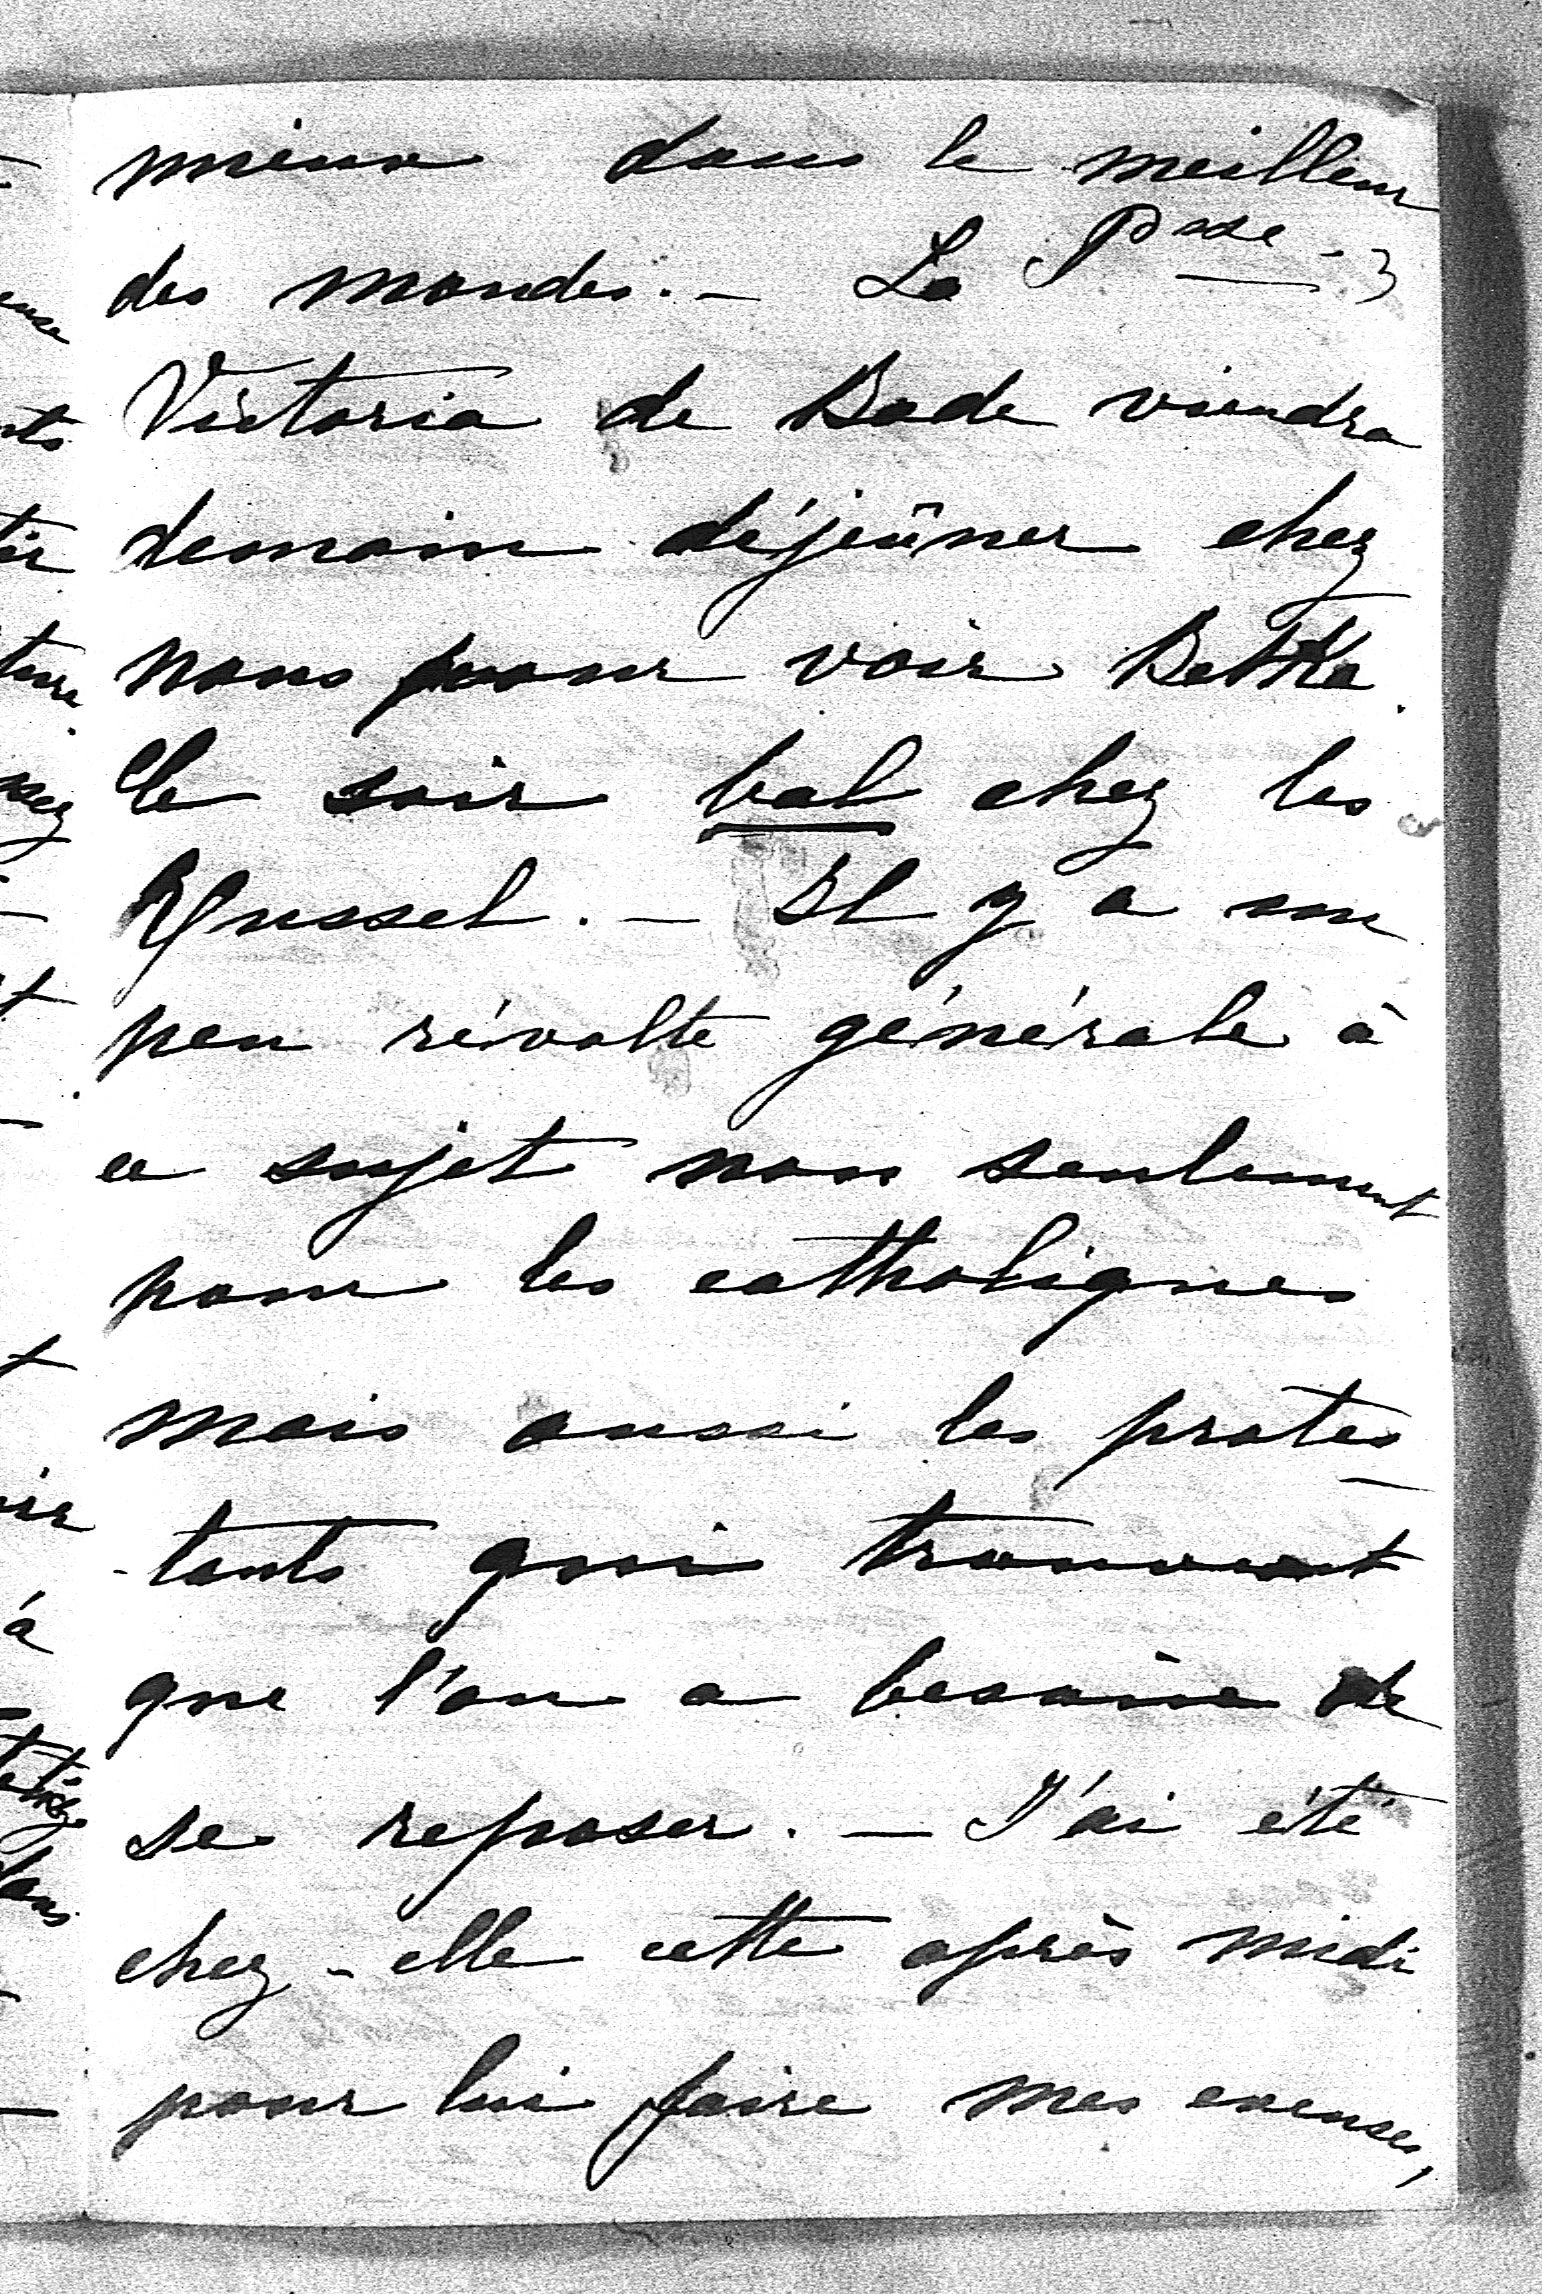 mieux dans le meilleur
des mondes. - La Psse
Victoria de Bade viendra
demain déjeûner chez
nous pour voir Bethe.
le soir bal chez les
Russel. - Il y a un
peu révolte générale à
ce sujet non seulement
pour les catholiques
mais aussi les protes-
-tants qui trouvent
que l'on a besoin de
se reposer. - J'ai été
chez-elle cette après midi
pour lui faire mes excuses,